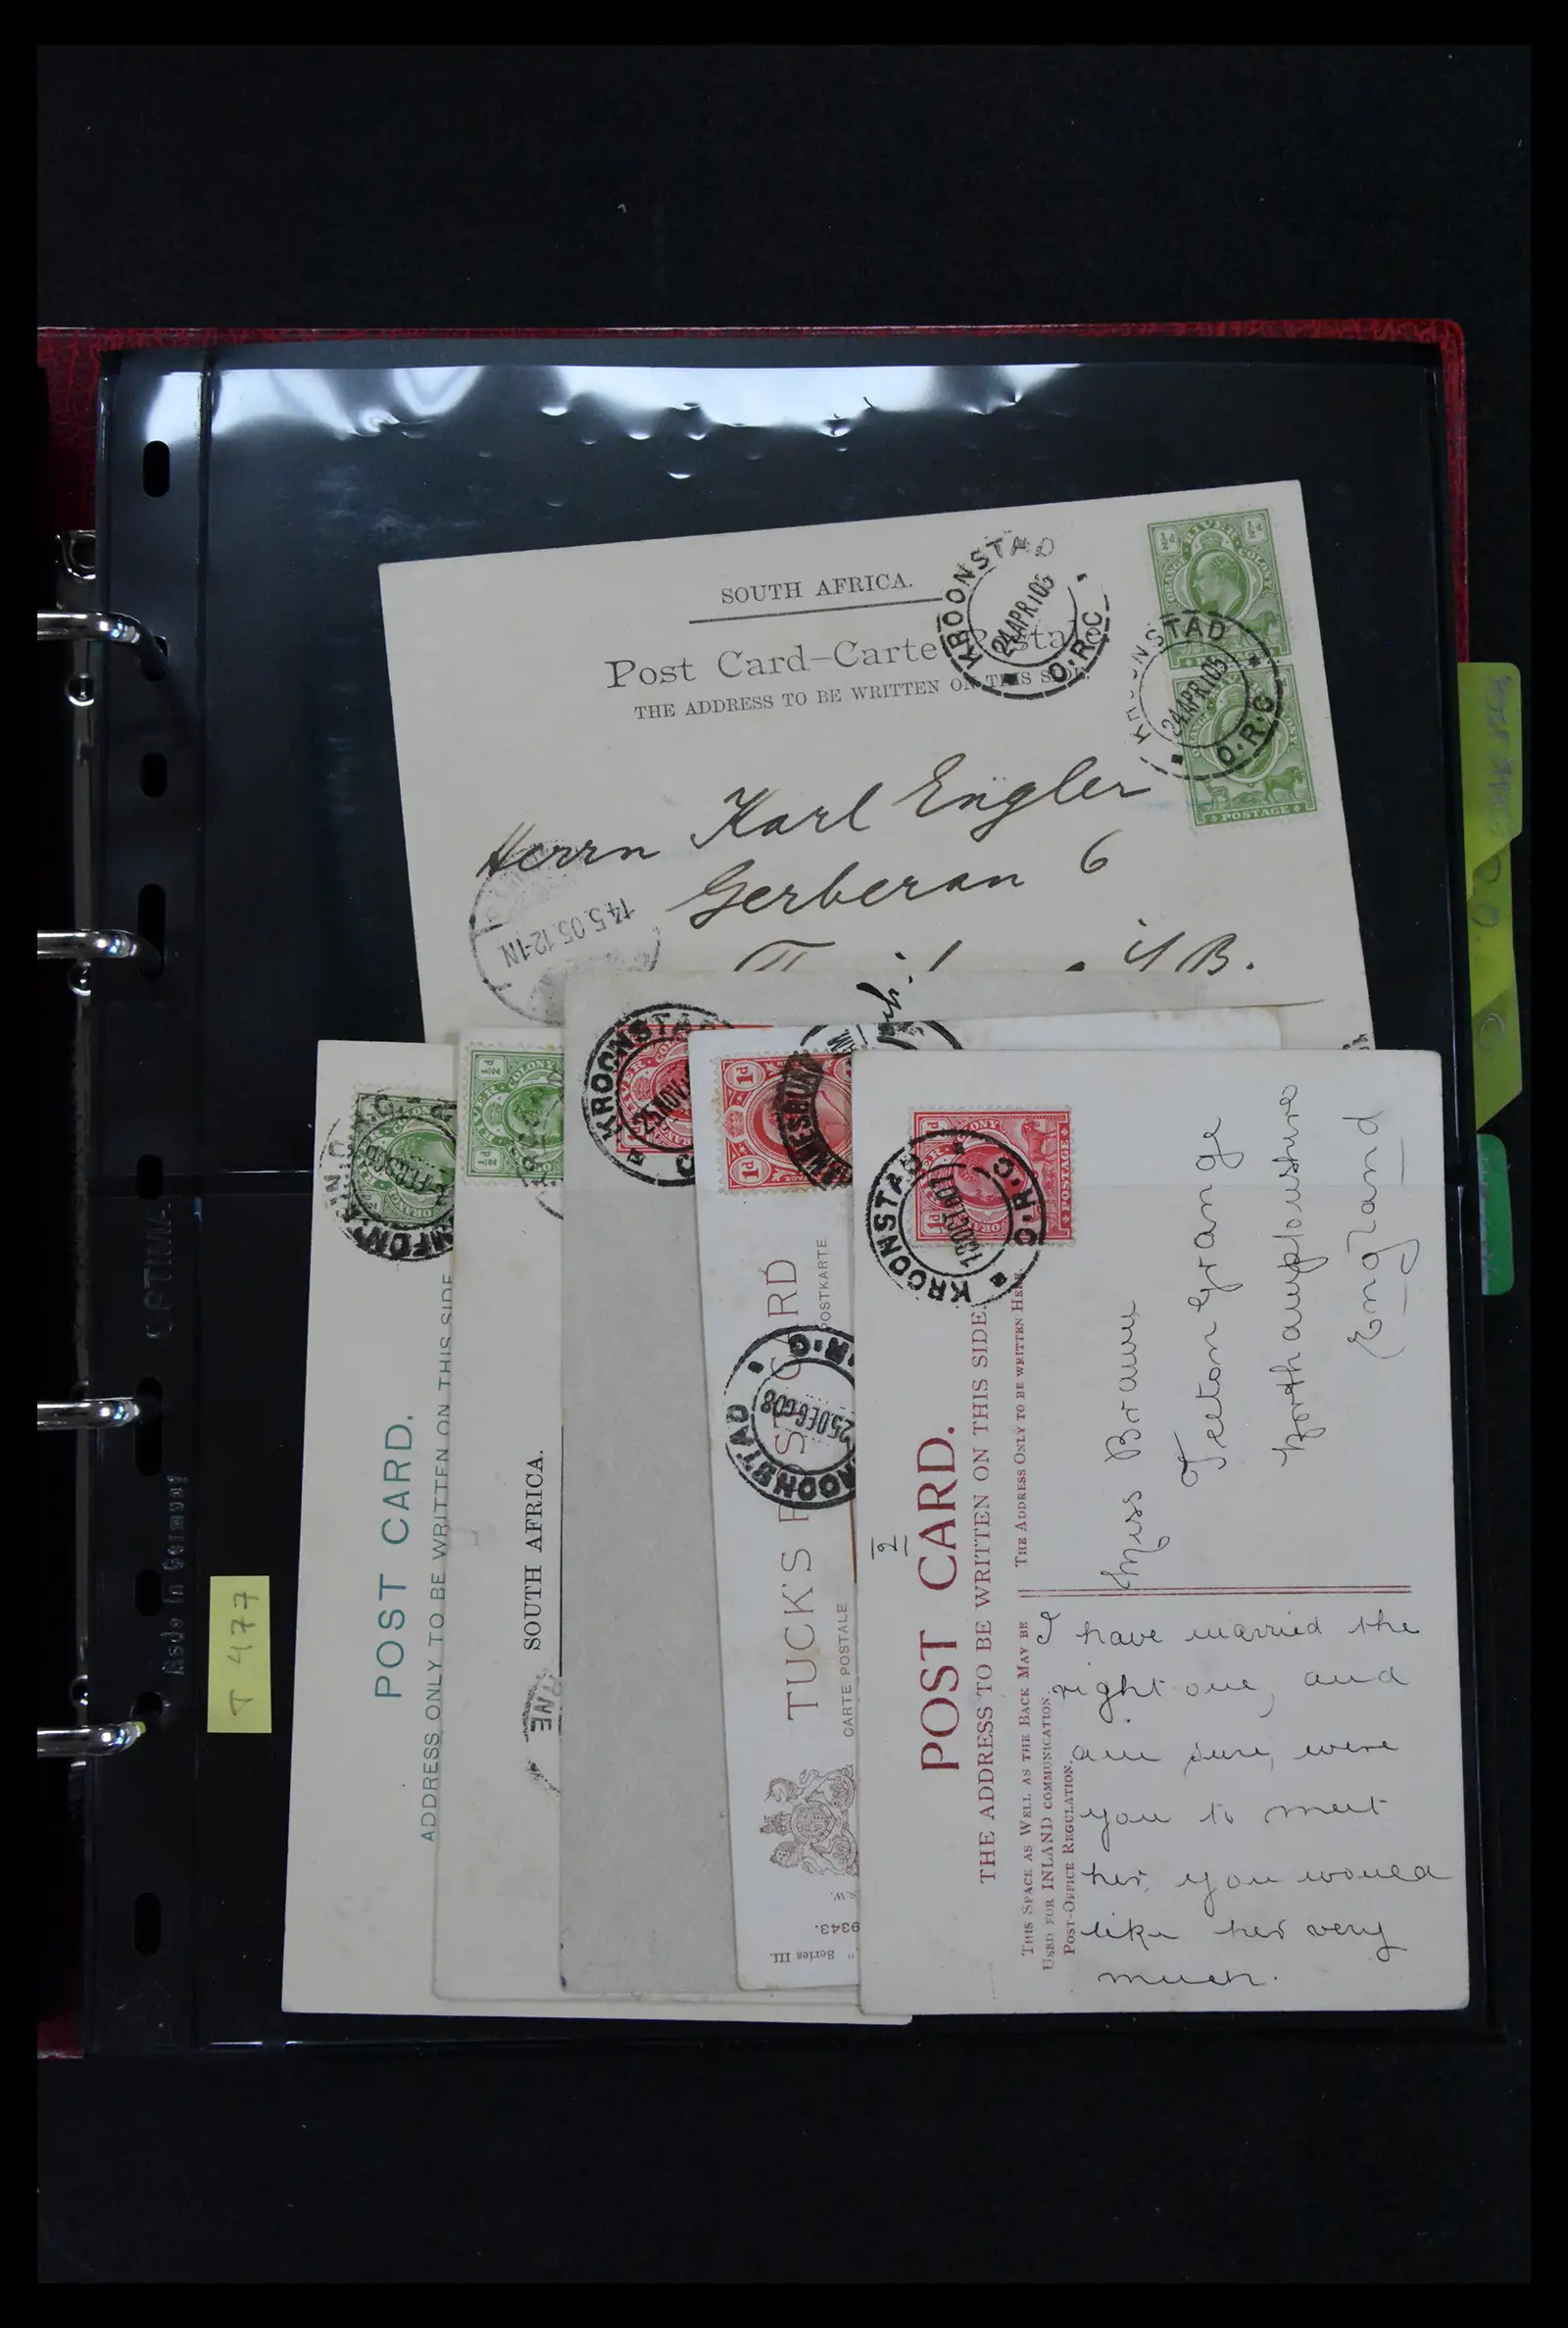 SOUTH AFRICA.
Post Card–Carte Postale
THE ADDRESS TO BE WRITTEN ON THIS SIDE.
KROONSTAD
24 APR 05
O.R.C
½d ORANGE RIVER COLONY ½d
POSTAGE
KROONSTAD
24 APR 05
O.R.C
POSTAGE
Herrn Karl Engler
Gerberau 6
i/B.
14.5.05.12-1N
POST CARD.
ADDRESS ONLY TO BE WRITTEN ON THIS SIDE
½d RIVER COLONY
½d
SOUTH AFRICA.
KROONSTAD
25 NOV
1d
1d
TUCK'S POST CARD
CARTE POSTALE
POSTKARTE
KROONSTAD
25 DEC 08
O.R.C
9343.
Series III.
KROONSTAD
13 OCT 07
O.R.C
1d
1d
POSTAGE
POST CARD.
THE ADDRESS TO BE WRITTEN ON THIS SIDE.
THIS SPACE AS WELL AS THE BACK MAY BE
USED FOR INLAND COMMUNICATION.
POST-OFFICE REGULATION.
THE ADDRESS ONLY TO BE WRITTEN HERE.
Miss Brown
Teeton Grange
Northamptonshire
England
I have married the
right one, and
am sure, were
you to meet
her, you would
like her very
much.
OPTIMA
Made in Germany
T 477